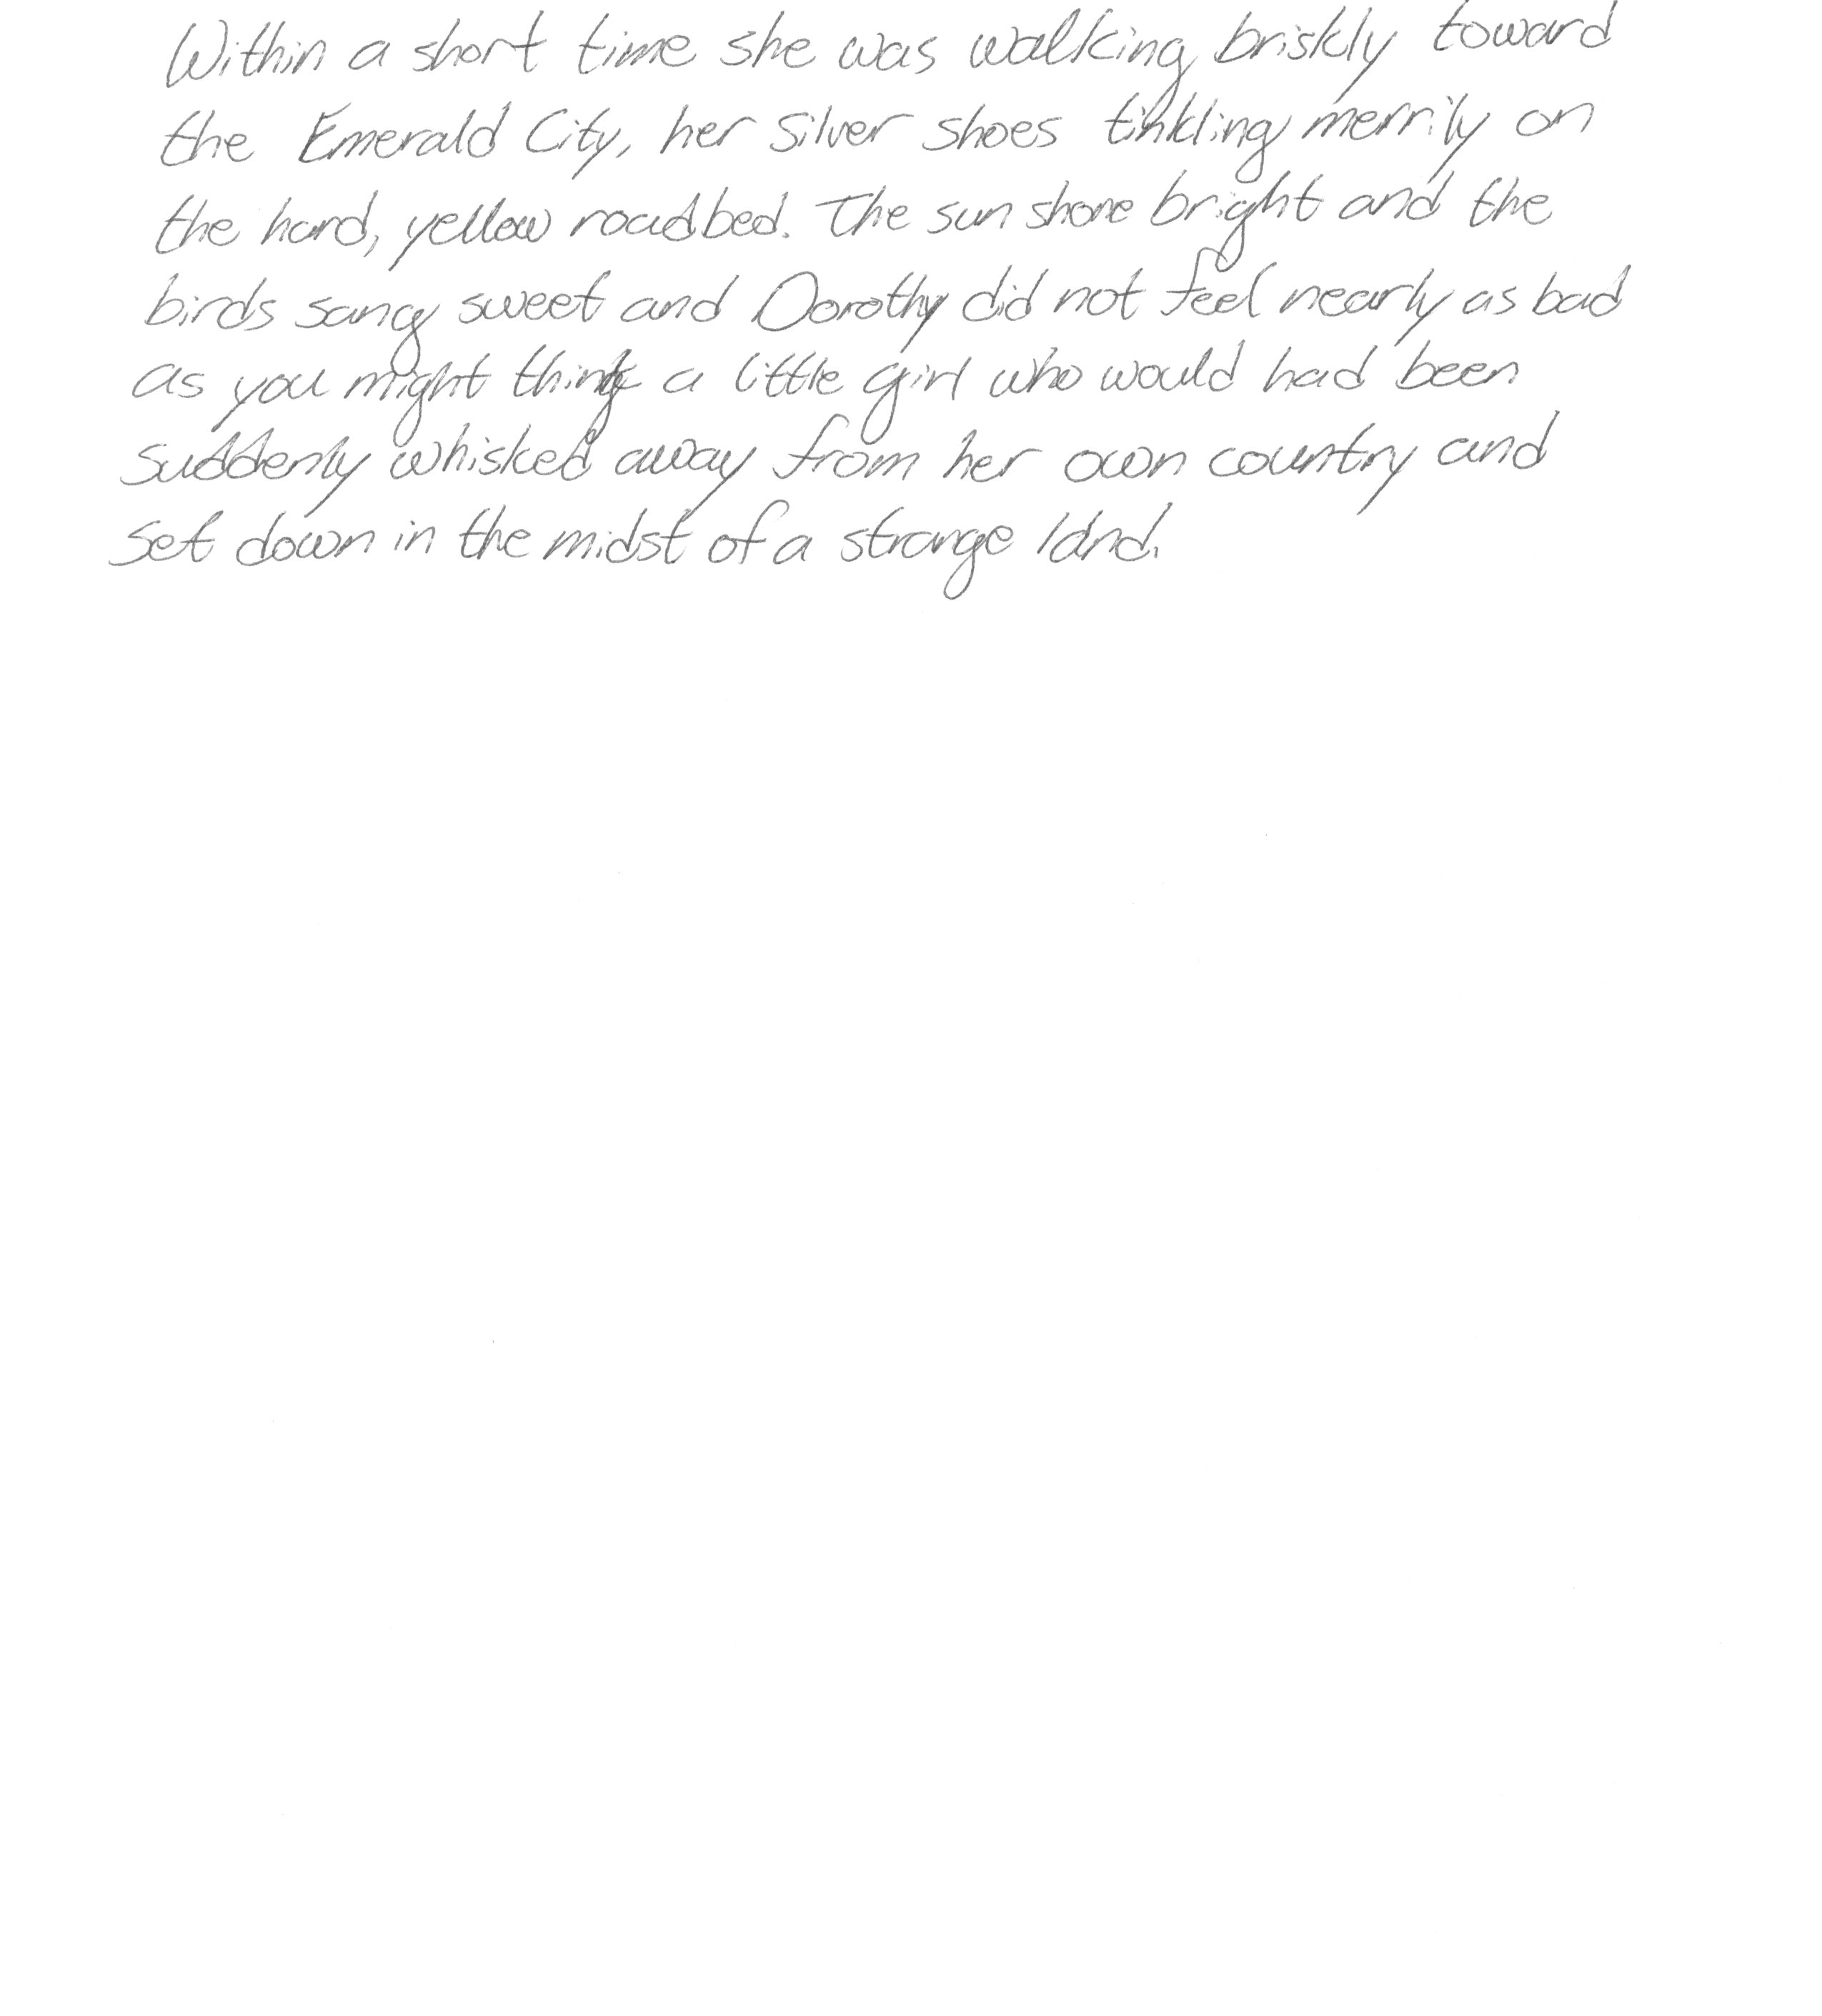 Within a short time she was walking briskly toward
the Emerald City, her Silver Shoes tinkling merrily on
the hard, yellow roadbed. The sun shone bright and the
birds sang sweet and Dorothy did not feel nearly as bad
as you might think a little girl who would had been
suddenly whisked away from her own country and
set down in the midst of a strange land.